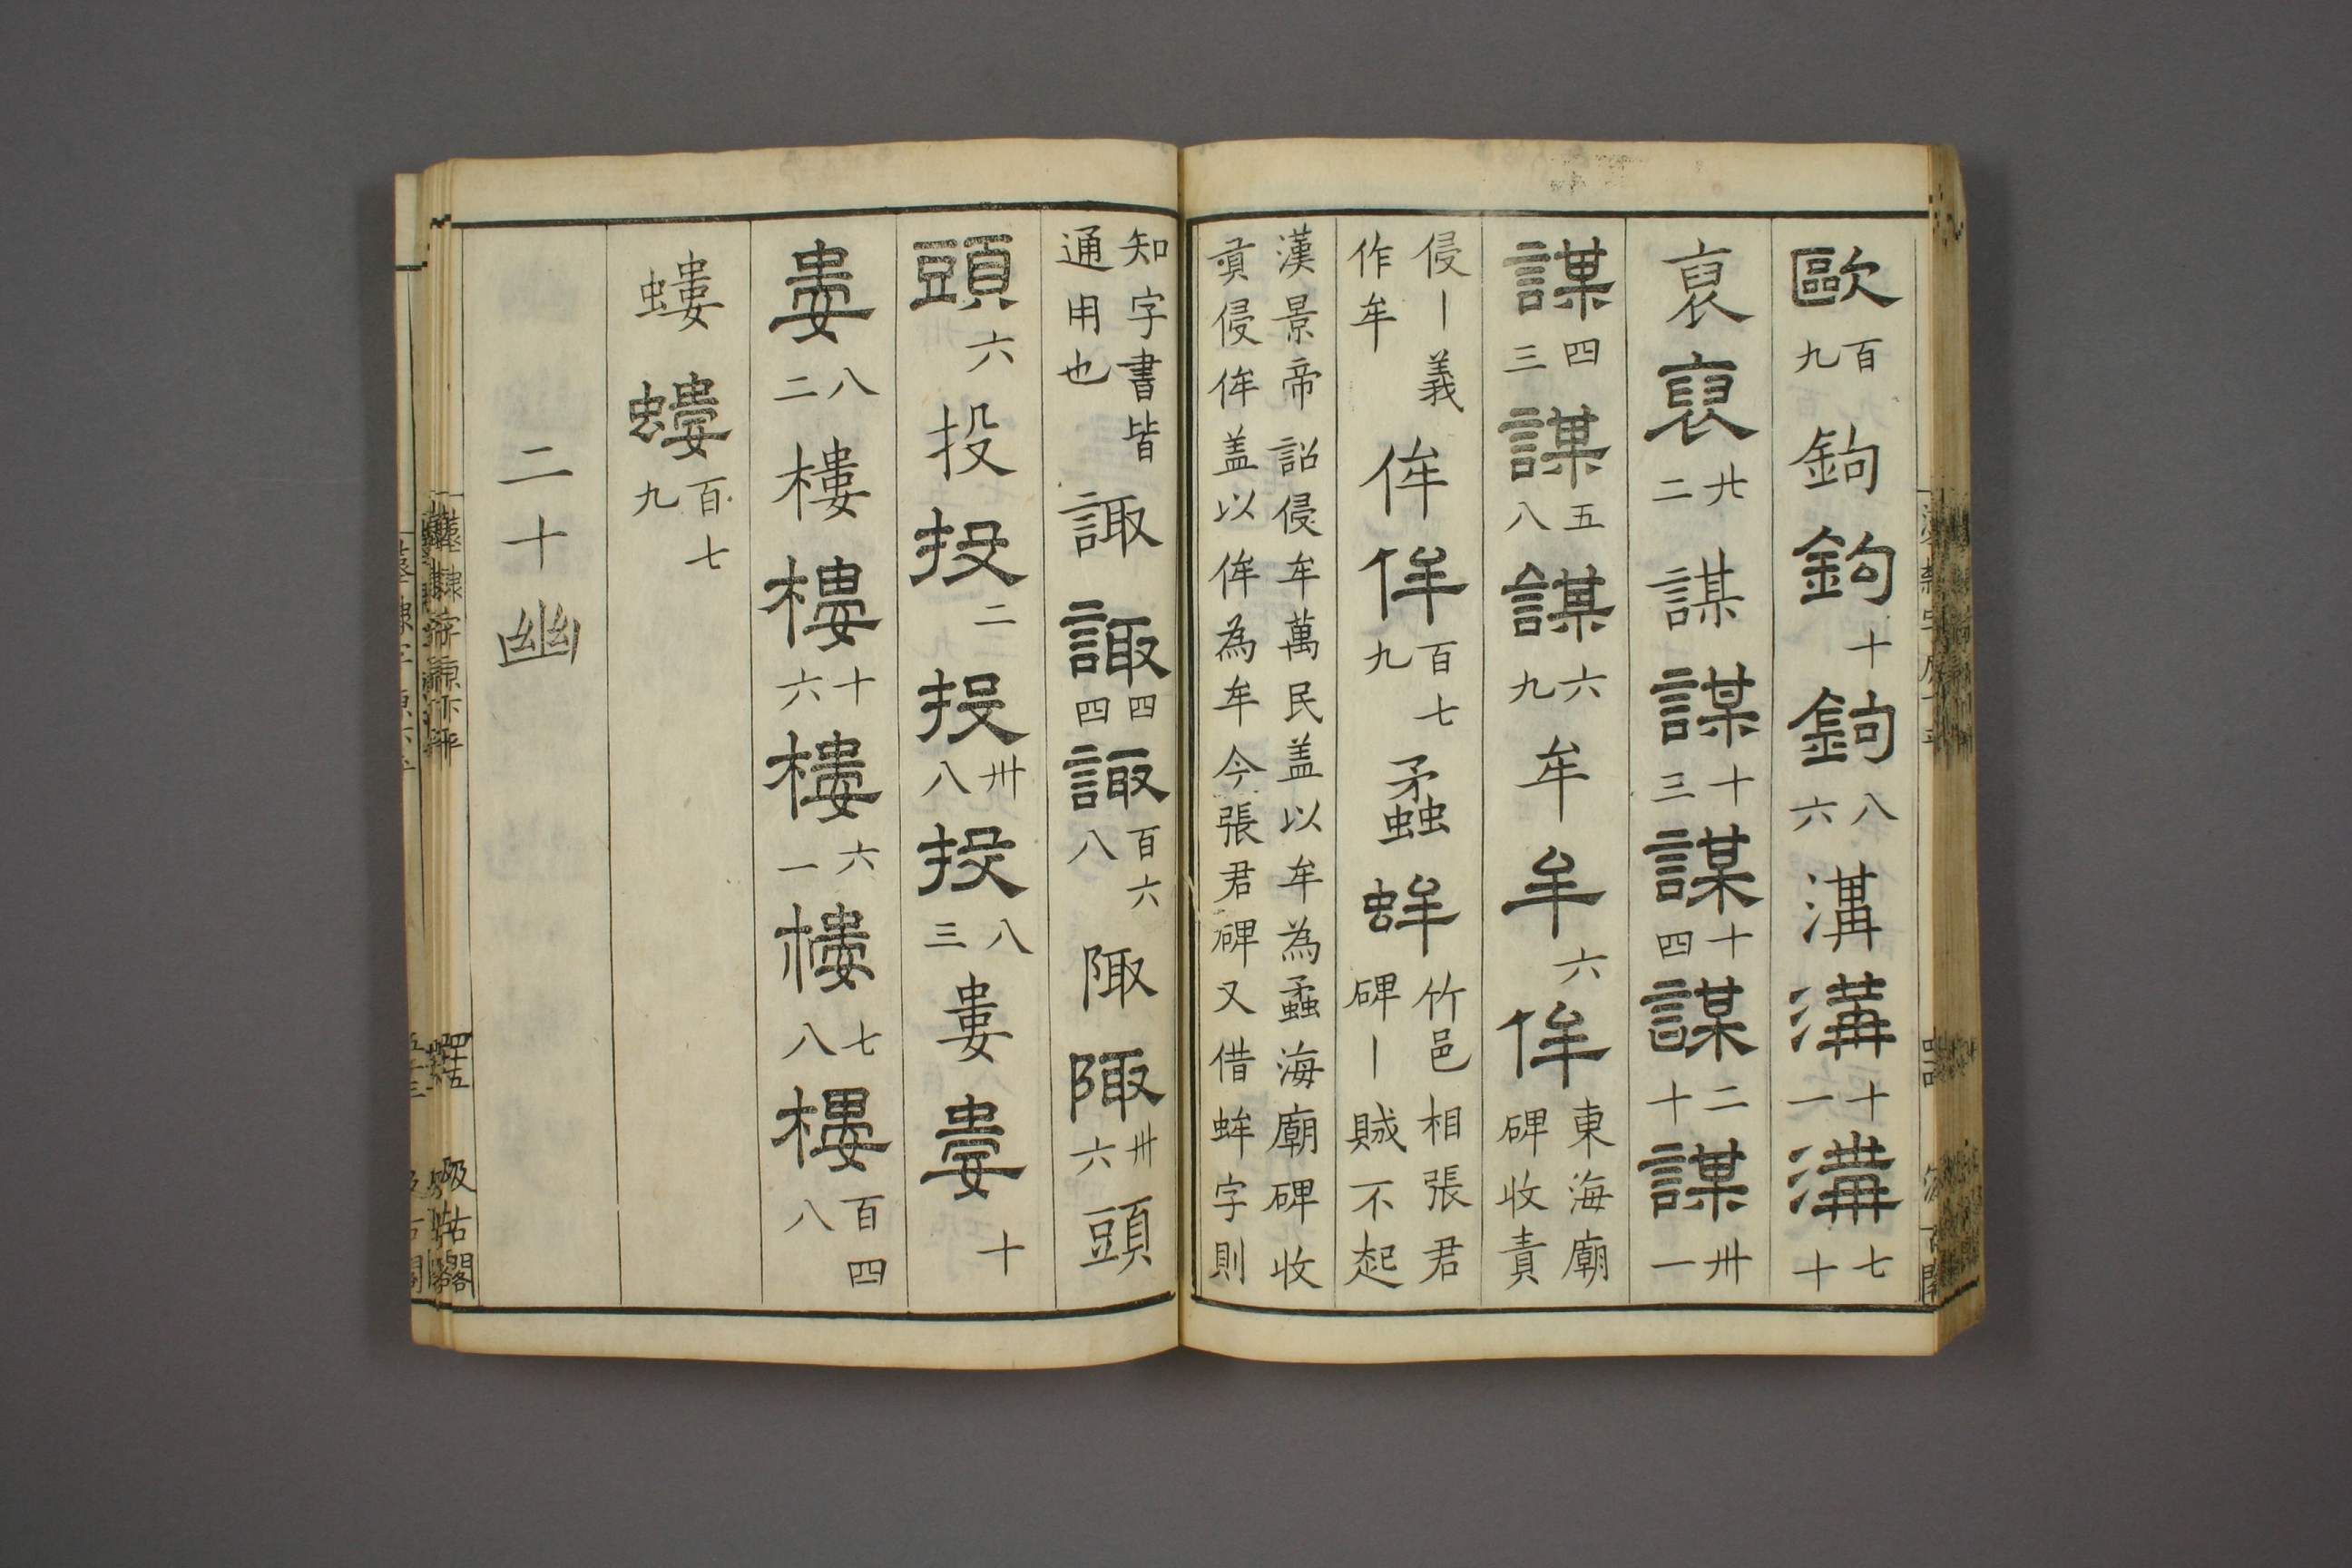 歐百九鉤鉤十鉤八六溝溝十一溝七十
裒裒廿二謀謀十三謀十四謀二十謀卅一
謀四三謀五八謀六九牟牟六侔東海廟碑收責
侵丨義作牟侔侔百七九蟊蛑竹邑相張君碑丨賊不起
漢景帝詔侵牟萬民盖以牟為蟊海廟碑收
責侵侔盖以侔為牟今張君碑又借蛑字則
知字書皆通用也諏諏四四諏百六八陬陬卅六頭
頭六投投二投卅八投八三婁婁十
婁八二樓樓十六樓六一樓七八樓百四八
螻螻百七九
二十幽
漢隸字源下平
四十五
汲古閣